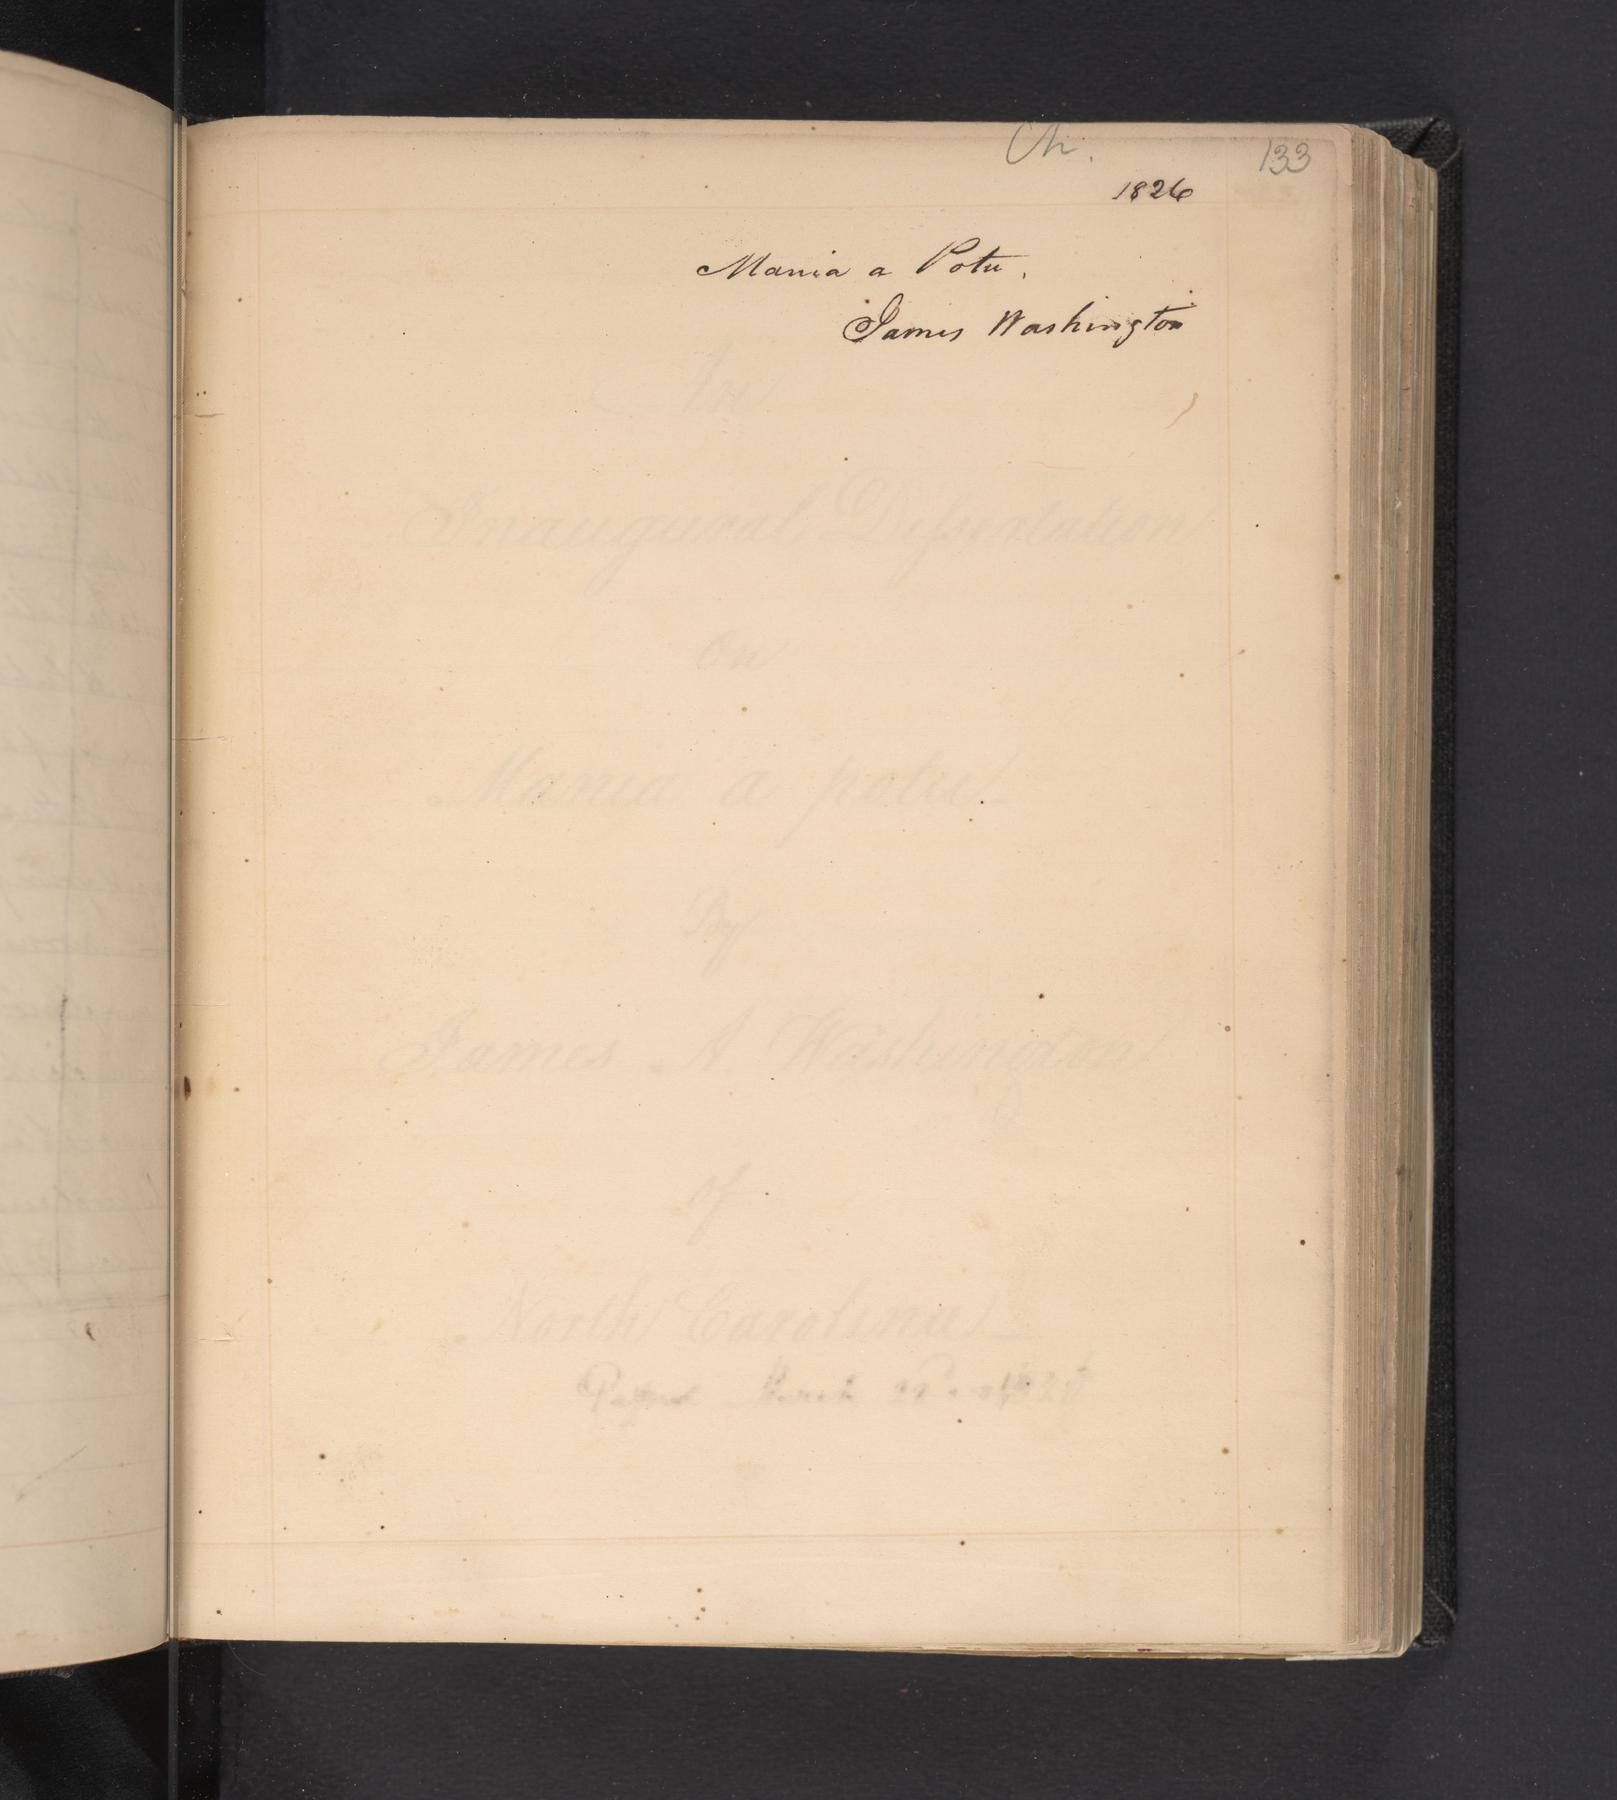 Ch.
133
1826
Mania a Potu.
James Washington
An
Inaugural Dissertation
on
Mania a potu
By
James A Washington
of
North Carolina
Passed March